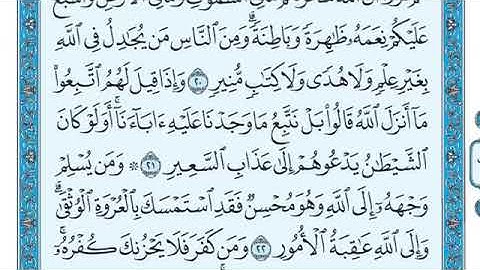 عَلَيْكُمْ نِعَمَهُۥ ظَٰهِرَةً وَبَاطِنَةً ۗ وَمِنَ ٱلنَّاسِ مَن يُجَٰدِلُ فِى ٱللَّهِ
بِغَيْرِ عِلْمٍ وَلَا هُدًى وَلَا كِتَٰبٍ مُّنِيرٍ ٢٠ وَإِذَا قِيلَ لَهُمُ ٱتَّبِعُوا۟
مَآ أَنزَلَ ٱللَّهُ قَالُوا۟ بَلْ نَتَّبِعُ مَا وَجَدْنَا عَلَيْهِ ءَابَآءَنَآ ۚ أَوَلَوْ كَانَ
ٱلشَّيْطَٰنُ يَدْعُوهُمْ إِلَىٰ عَذَابِ ٱلسَّعِيرِ ٢١ ۞ وَمَن يُسْلِمْ
وَجْهَهُۥٓ إِلَى ٱللَّهِ وَهُوَ مُحْسِنٌ فَقَدِ ٱسْتَمْسَكَ بِٱلْعُرْوَةِ ٱلْوُثْقَىٰ ۗ
وَإِلَى ٱللَّهِ عَٰقِبَةُ ٱلْأُمُورِ ٢٢ وَمَن كَفَرَ فَلَا يَحْزُنكَ كُفْرُهُۥٓ ۚ